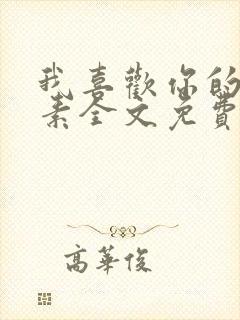 我喜歡你的
素全文免費
高華俊